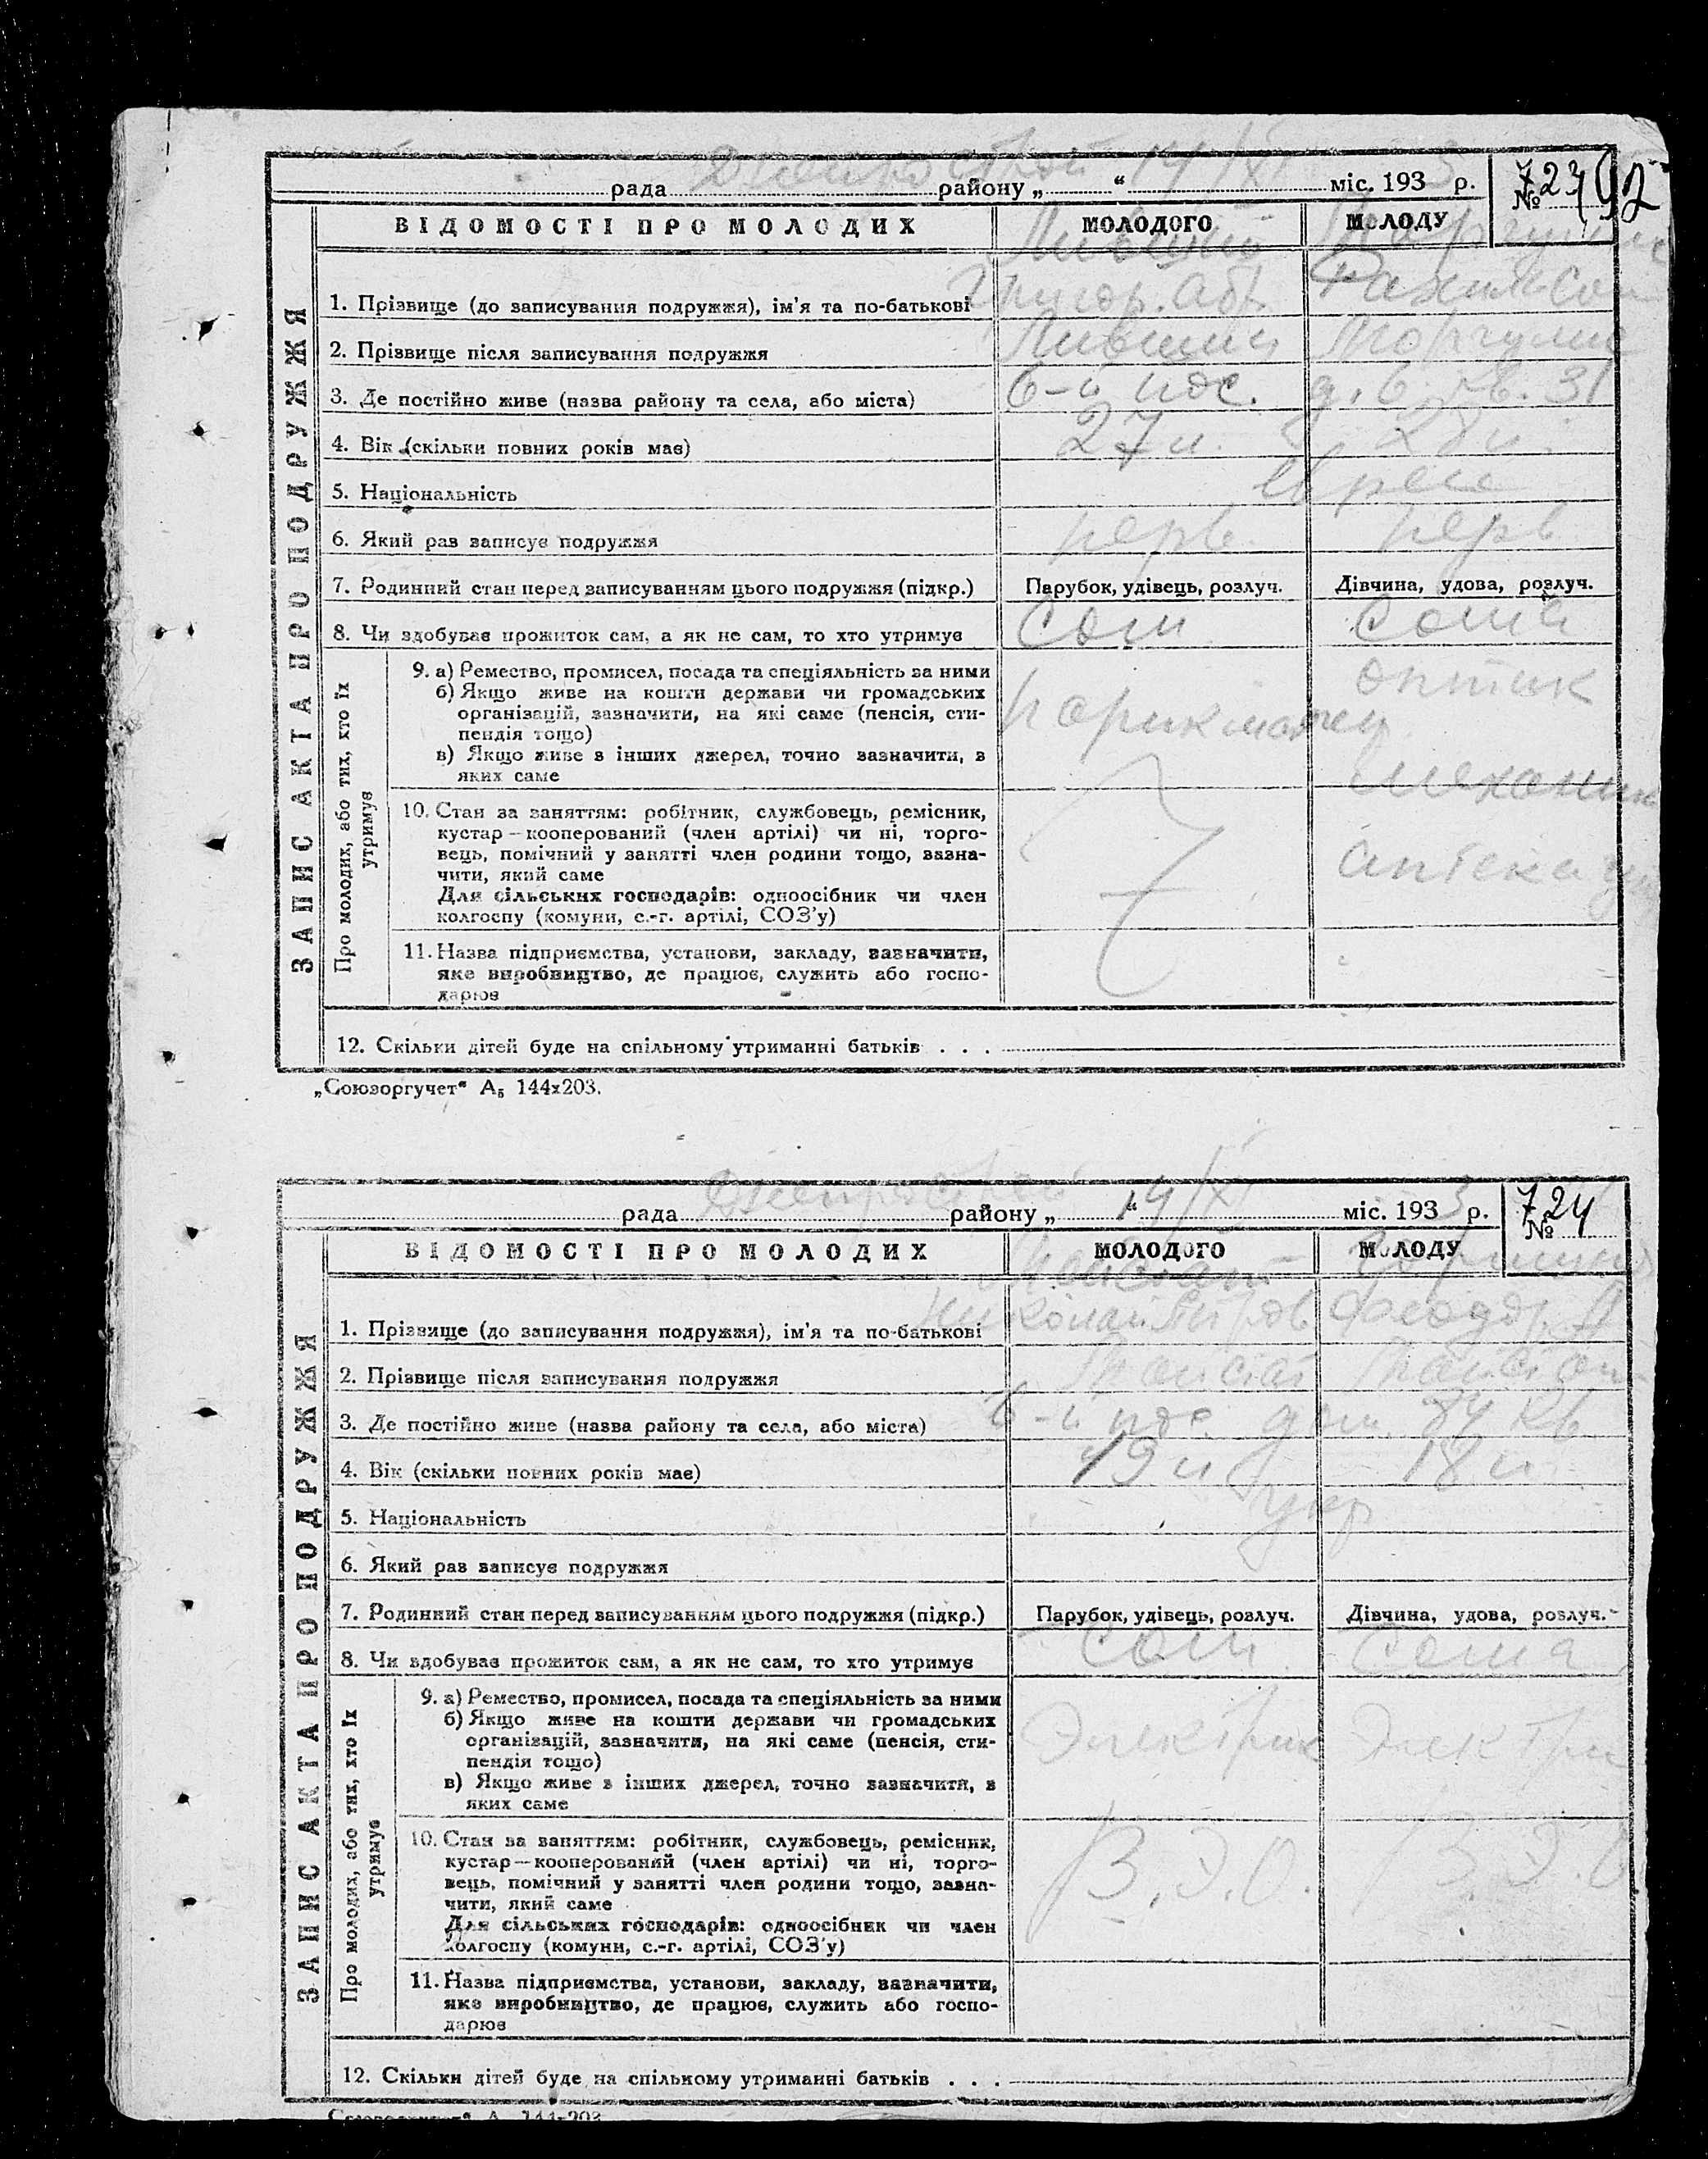 Днепрострой 14/XI 3
рада района „ “ міс. 193 р.
723
№
92
ВІДОМОСТІ ПРО МОЛОДИХ
МОЛОДОГО
МОЛОДУ
ЗАПИС АКТА ПРО ПОДРУЖЖЯ
Лившиц
Григор. Абр.
1. Прізвище (до записування подружжя), ім'я та по-батькові
2. Прізвище після записування подружжя Лившиц Моргулис
3. Де постійно живе (назва району та села, або міста) 6-й пос. д. 6 кв. 31
4. Вік (скільки повних років має) 27 л. 28 л.
5. Національність евреи
6. Який раз записує подружжя перв. перв
7. Родинний стан перед записуванням цього подружжя (підкр.) Парубок, удівець, розлуч. Дівчина, удова, розлуч.
8. Чи здобуває прожиток сам, а як не сам, то хто утримує Сам Сама
Про молодих, або тих, хто їх утримує
9. а) Ремество, промисел, посада та спеціяльність за ними
б) Якщо живе на кошти держави чи громадських
організацій, зазначити, на які саме (пенсія, сти-
пендія тощо)
в) Якщо живе з інших джерел, точно зазначити, з
яких саме
парикмахер
оптик
механик
10. Стан за заняттям: робітник, службовець, ремісник,
кустар — кооперований (член артілі) чи ні, торго-
вець, помічний у занятті член родини тощо, зазна-
чити, який саме
Для сільських господарів: одноосібник чи член
колгоспу (комуни, с.-г. артілі, СОЗ'у)
7
аптека
11. Назва підприємства, установи, закладу, зазначити,
яке виробництво, де працює, служить або госпо-
дарює
12. Скільки дітей буде на спільному утриманні батьків . . .
„Союзоргучет“ А₅ 144х203.
Днепрострой 14/XI
рада району „ “ міс. 193 3 р.
724
№
ВІДОМОСТІ ПРО МОЛОДИХ
МОЛОДОГО
МОЛОДУ
ЗАПИС АКТА ПРО ПОДРУЖЖЯ
Николай Петров
1. Прізвище (до записування подружжя), ім'я та по-батькові
2. Прізвище після записування подружжя
3. Де постійно живе (назва району та села, або міста) 6-й пос. дом. 74 кв
4. Вік (скільки повних років має) 19 л 18 л
5. Національність укр
6. Який раз записує подружжя
7. Родинний стан перед записуванням цього подружжя (підкр.) Парубок, удівець, розлуч. Дівчина, удова, розлуч.
8. Чи здобуває прожиток сам, а як не сам, то хто утримує Сам Сама
Про молодих, або тих, хто їх утримує
9. а) Ремество, промисел, посада та спеціяльність за ними
б) Якщо живе на кошти держави чи громадських
організацій, зазначити, на які саме (пенсія, сти-
пендія тощо)
в) Якщо живе з інших джерел, точно зазначити, з
яких саме
Электрик Электри
10. Стан за заняттям: робітник, службовець, ремісник,
кустар — кооперований (член артілі) чи ні, торго-
вець, помічний у занятті член родини тощо, зазна-
чити, який саме
Для сільських господарів: одноосібник чи член
колгоспу (комуни, с.-г. артілі, СОЗ'у)
В.Э.О. В.Э.О
11. Назва підприємства, установи, закладу, зазначити,
яке виробництво, де працює, служить або госпо-
дарює
12. Скільки дітей буде на спільному утриманні батьків . . .